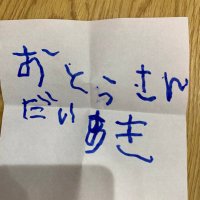 おとうさん
だいすき